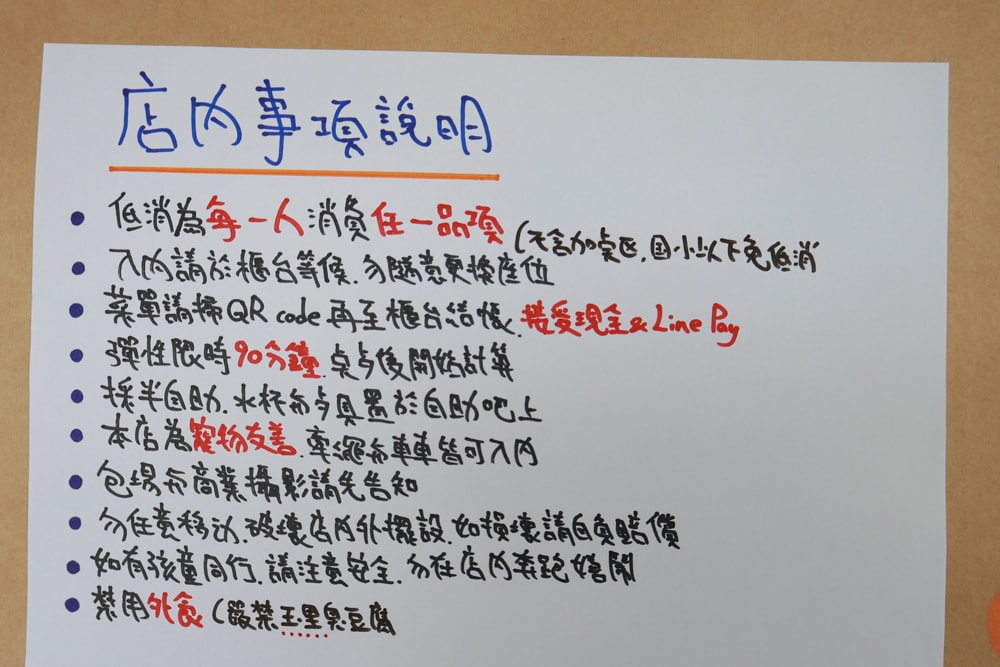 店內事項說明
• 低消為每一人消費任一品項 (不含加桌區,國小以下免低消
• 入內請於櫃台等候,勿隨意更換座位
• 菜單請掃QR code再至櫃台結帳,接受現金&Line Pay
• 彈性限時90分鐘,桌占後開始計算
• 採半自助,水杯夯占具置於自助吧上
• 本店為寵物友善,牽繩夯車車皆可入內
• 包場夯商業攝影請先告知
• 勿任意移动,破壞店內外擺設,如損壞請自負賠償
• 如有孩童同行,請注意安全,勿在店內奔跑嬉鬧
• 禁用外食 (嚴禁玉里臭豆腐